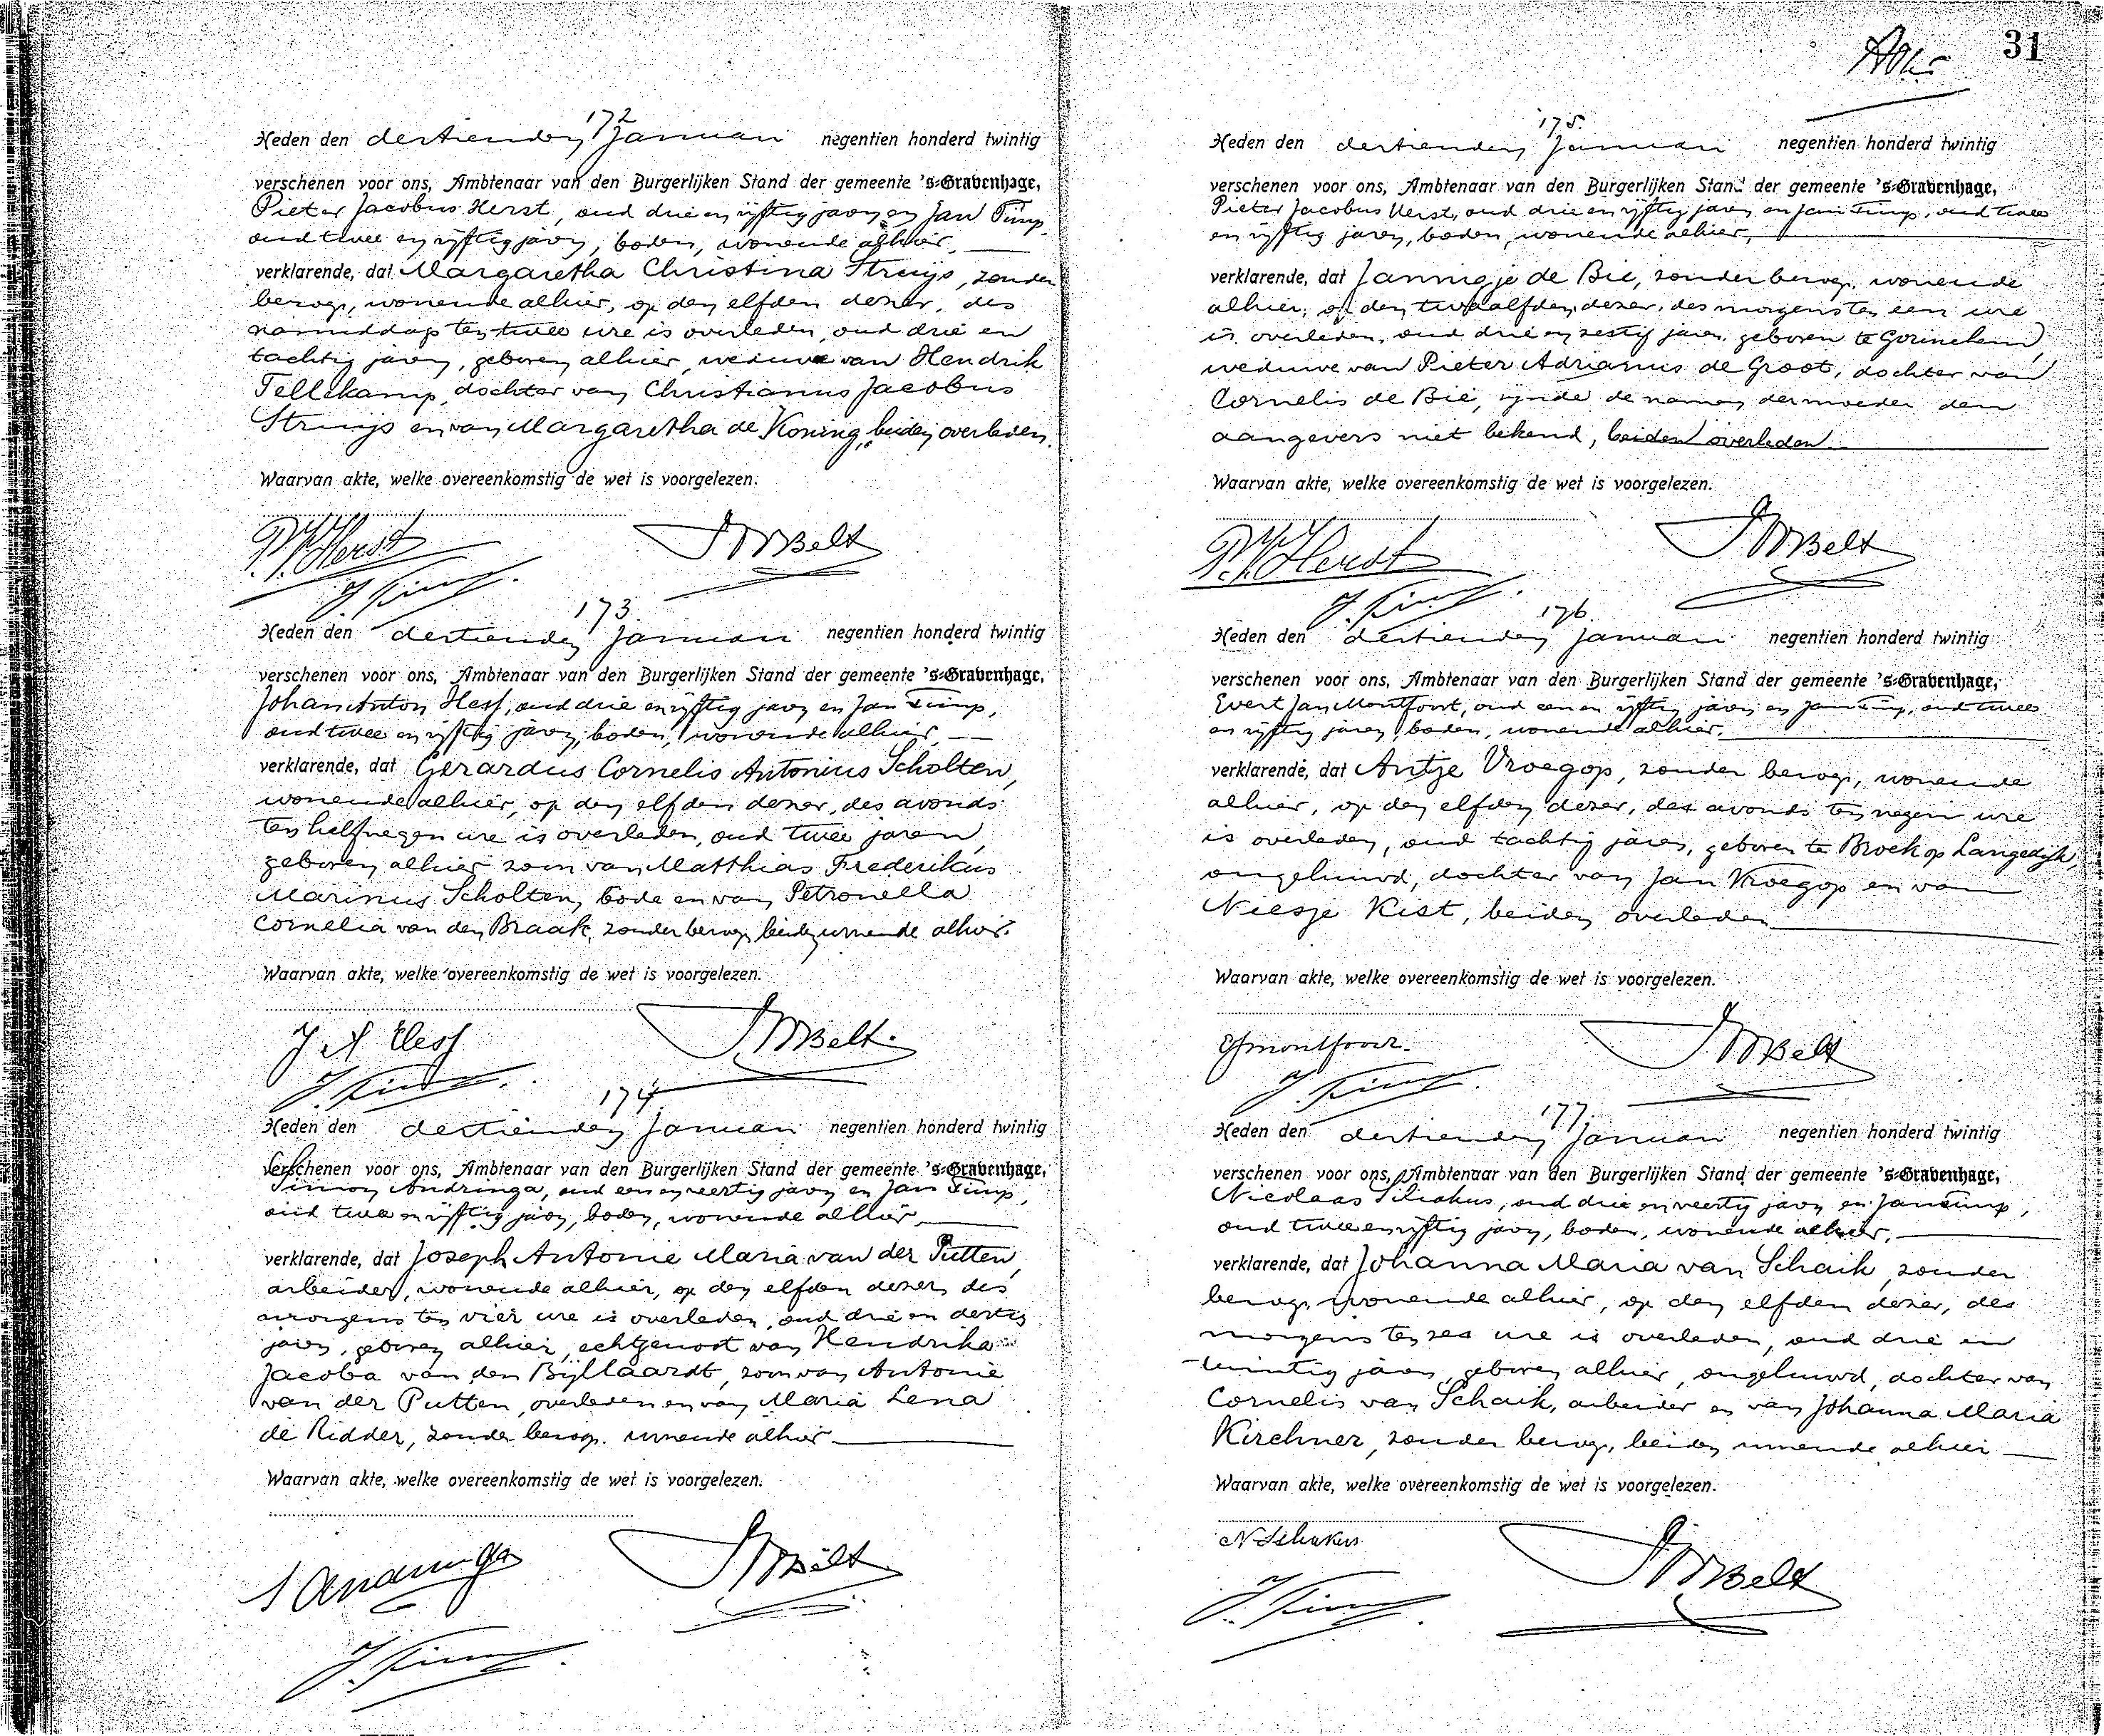 172
Heden den dertienden Januari negentien honderd twintig
verschenen voor ons, Ambtenaar van den Burgerlijken Stand der gemeente 's-Gravenhage,
Pieter Jacobus Herst, oud drie en vijftig jaren en Jan Timp,
oud twee en vijftig jaren, boden, wonende alhier,
verklarende, dat Margaretha Christina Struijs, zonder
beroep, wonende alhier, op den elfden dezer, des
namiddags ten twee ure is overleden, oud drie en
tachtig jaren, geboren alhier, weduwe van Hendrik
Tellekamp, dochter van Christianus Jacobus
Struijs en van Margaretha de Koning, beiden overleden.
Waarvan akte, welke overeenkomstig de wet is voorgelezen.
P.J. Herst Belt
J. Timp
173
Heden den dertienden Januari negentien honderd twintig
verschenen voor ons, Ambtenaar van den Burgerlijken Stand der gemeente 's-Gravenhage,
Johan Anton Hess, oud drie en vijftig jaren en Jan Timp,
oud twee en vijftig jaren, boden, wonende alhier,
verklarende, dat Gerardus Cornelis Antonius Scholten,
wonende alhier, op den elfden dezer, des avonds
ten half negen ure is overleden, oud twee jaren,
geboren alhier zoon van Matthias Frederikus
Marinus Scholten, bode en van Petronella
Cornelia van den Braak, zonder beroep, beiden wonende alhier.
Waarvan akte, welke overeenkomstig de wet is voorgelezen.
J A Hess Belt.
J. Timp
174
Heden den dertienden Januari negentien honderd twintig
verschenen voor ons, Ambtenaar van den Burgerlijken Stand der gemeente 's-Gravenhage,
Simon Andringa, oud een en veertig jaren en Jan Timp,
oud twee en vijftig jaren, boden, wonende alhier,
verklarende, dat Joseph Antonie Maria van der Putten,
arbeider, wonende alhier, op den elfden dezer, des
morgens ten vier ure is overleden, oud drie en dertig
jaren, geboren alhier, echtgenoot van Hendrika
Jacoba van den Bijllaardt, zoon van Antonie
van der Putten, overleden en van Maria Lena
de Ridder, zonder beroep. wonende alhier
Waarvan akte, welke overeenkomstig de wet is voorgelezen.
S Andringa Belt
J. Timp
31
175.
Heden den dertienden Januari negentien honderd twintig
verschenen voor ons, Ambtenaar van den Burgerlijken Stand der gemeente 's-Gravenhage,
Pieter Jacobus Herst, oud drie en vijftig jaren en Jan Timp, oud twee
en vijftig jaren, boden, wonende alhier,
verklarende, dat Jannigje de Bie, zonder beroep, wonende
alhier, op den twaalfden dezer, des morgens ten een ure
is overleden, oud drie en zestig jaren, geboren te Gorinchem,
weduwe van Pieter Adrianus de Groot, dochter van
Cornelis de Bie, zijnde de namen der moeder den
aangevers niet bekend, beiden overleden
Waarvan akte, welke overeenkomstig de wet is voorgelezen.
P.J. Herst Belt
J. Timp
176.
Heden den dertienden Januari negentien honderd twintig
verschenen voor ons, Ambtenaar van den Burgerlijken Stand der gemeente 's-Gravenhage,
Evert Jan Montfoort, oud een en vijftig jaren en Jan Timp, oud twee
en vijftig jaren, boden, wonende alhier,
verklarende, dat Antje Vroegop, zonder beroep, wonende
alhier, op den elfden dezer, des avonds ten negen ure
is overleden, oud tachtig jaren, geboren te Broek op Langedijk,
ongehuwd, dochter van Jan Vroegop en van
Niesje Kist, beiden overleden
Waarvan akte, welke overeenkomstig de wet is voorgelezen.
EJMontfoort. Belt
J. Timp
177.
Heden den dertienden Januari negentien honderd twintig
verschenen voor ons, Ambtenaar van den Burgerlijken Stand der gemeente 's-Gravenhage,
Nicolaas Siliakus, oud drie en veertig jaren en Jan Timp,
oud twee en vijftig jaren, boden, wonende alhier,
verklarende, dat Johanna Maria van Schaik, zonder
beroep, wonende alhier, op den elfden dezer, des
morgens ten zes ure is overleden, oud drie en
twintig jaren, geboren alhier, ongehuwd, dochter van
Cornelis van Schaik, arbeider en van Johanna Maria
Kirchner, zonder beroep, beiden wonende alhier
Waarvan akte, welke overeenkomstig de wet is voorgelezen.
N Siliakus Belt
J. Timp